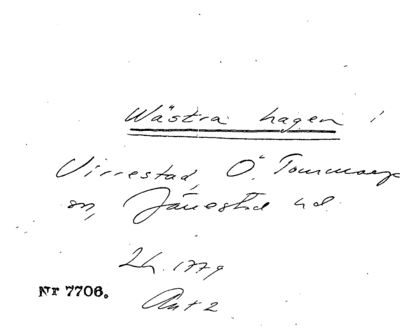 Wästra hagen i
Virrestad, Ö. Tommarp
sn, Järrestad hd
Lh. 1779
Nr 7706.
Akt 2